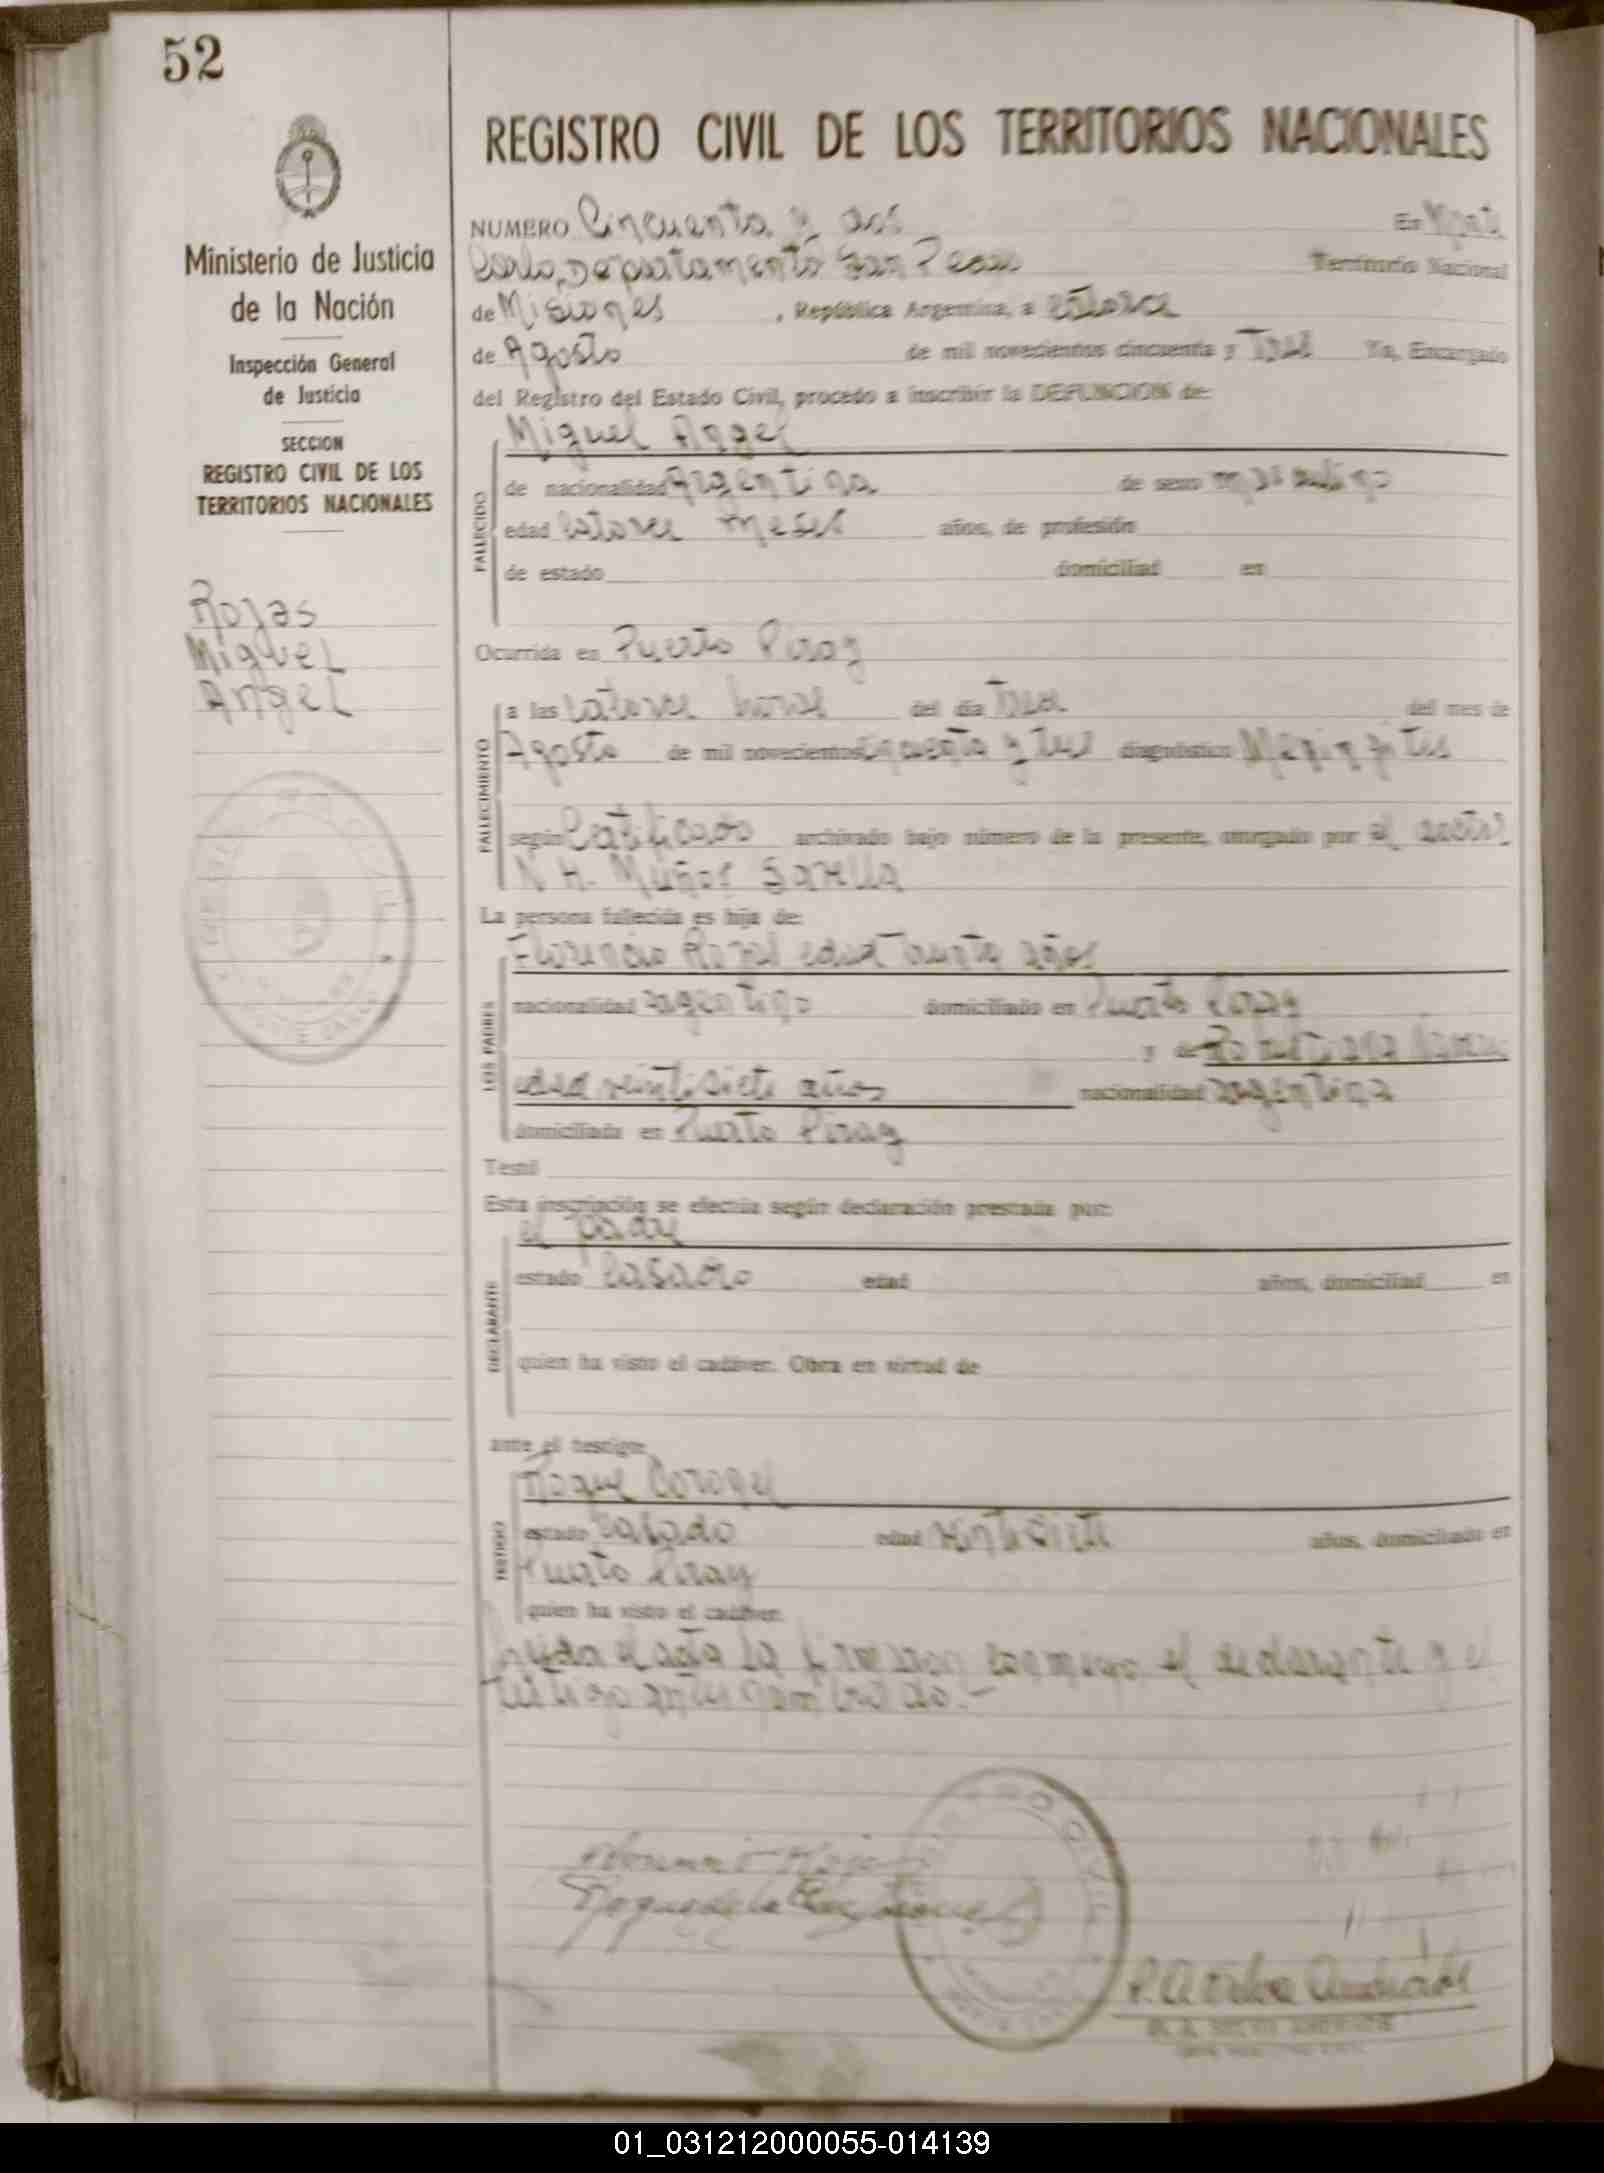 52
REGISTRO CIVIL DE LOS TERRITORIOS NACIONALES
Ministerio de Justicia
de la Nación
Inspección General
de Justicia
SECCION
REGISTRO CIVIL DE LOS
TERRITORIOS NACIONALES
Rojas
Miguel
Angel
NUMERO Cincuenta y dos En Monte
Carlo, Departamento San Pedro Territorio Nacional
de Misiones , República Argentina, a catorce
de Agosto de mil novecientos cincuenta y Tres Yo, Encargado
del Registro del Estado Civil, procedo a inscribir la DEFUNCION de:
Miguel Angel
FALLECIDO
de nacionalidad Argentina de sexo masculino
edad catorce meses años, de profesión
de estado domiciliad en
Ocurrida en Puerto Piray
FALLECIMIENTO
a las catorce horas del día Tres del mes de
Agosto de mil novecientos cincuenta y tres diagnóstico Meningitis
según Certificado archivado bajo número de la presente, otorgado por el doctor
N H. Muños
La persona fallecida es hija de:
LOS PADRES
Florencio Rojas edad treinta años
nacionalidad argentino domiciliado en Puerto Piray
y de
edad veintisiete años nacionalidad argentina
domiciliada en Puerto Piray
Testó
Esta inscripción se efectúa según declaración prestada por:
el padre
DECLARANTE
estado Casado edad años, domiciliad en
quien ha visto el cadáver. Obra en virtud de
ante el testigo
TESTIGO
Roque Coronel
estado Casado edad veintisiete años, domiciliado en
Puerto Piray
quien ha visto el cadáver.
Leida el acta la firmaron conmigo el declarante y el
testigo antes nombrado.-
01_031212000055-014139